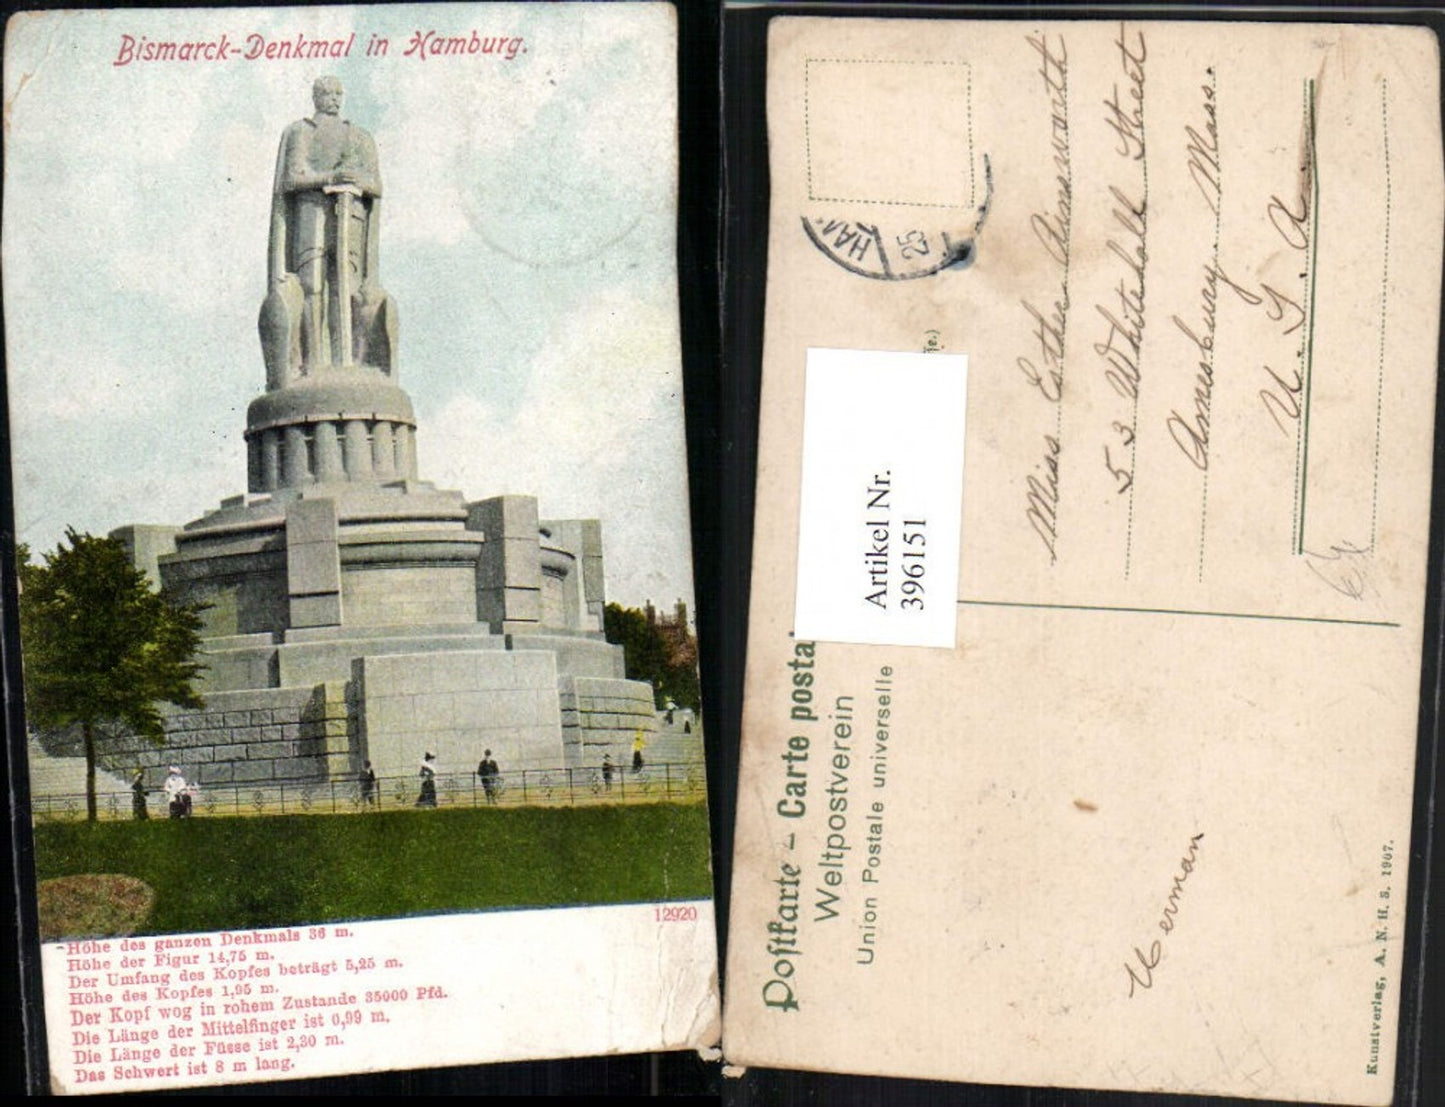 Bismarck-Denkmal in Hamburg.
12920
Höhe des ganzen Denkmals 36 m.
Höhe der Figur 14,75 m.
Der Umfang des Kopfes beträgt 5,25 m.
Höhe des Kopfes 1,95 m.
Der Kopf wog in rohem Zustande 35000 Pfd.
Die Länge der Mittelfinger ist 0,99 m.
Die Länge der Füsse ist 2,30 m.
Das Schwert ist 8 m lang.
HAM
25
Miss Esther Ainsworth
53 Whitehall Street
Amesbury. Mass.
U. S. A
Artikel Nr.
396151
Postkarte – Carte posta
Weltpostverein
Union Postale universelle
Herman
Kunstverlag, A. N. H. S. 1907.